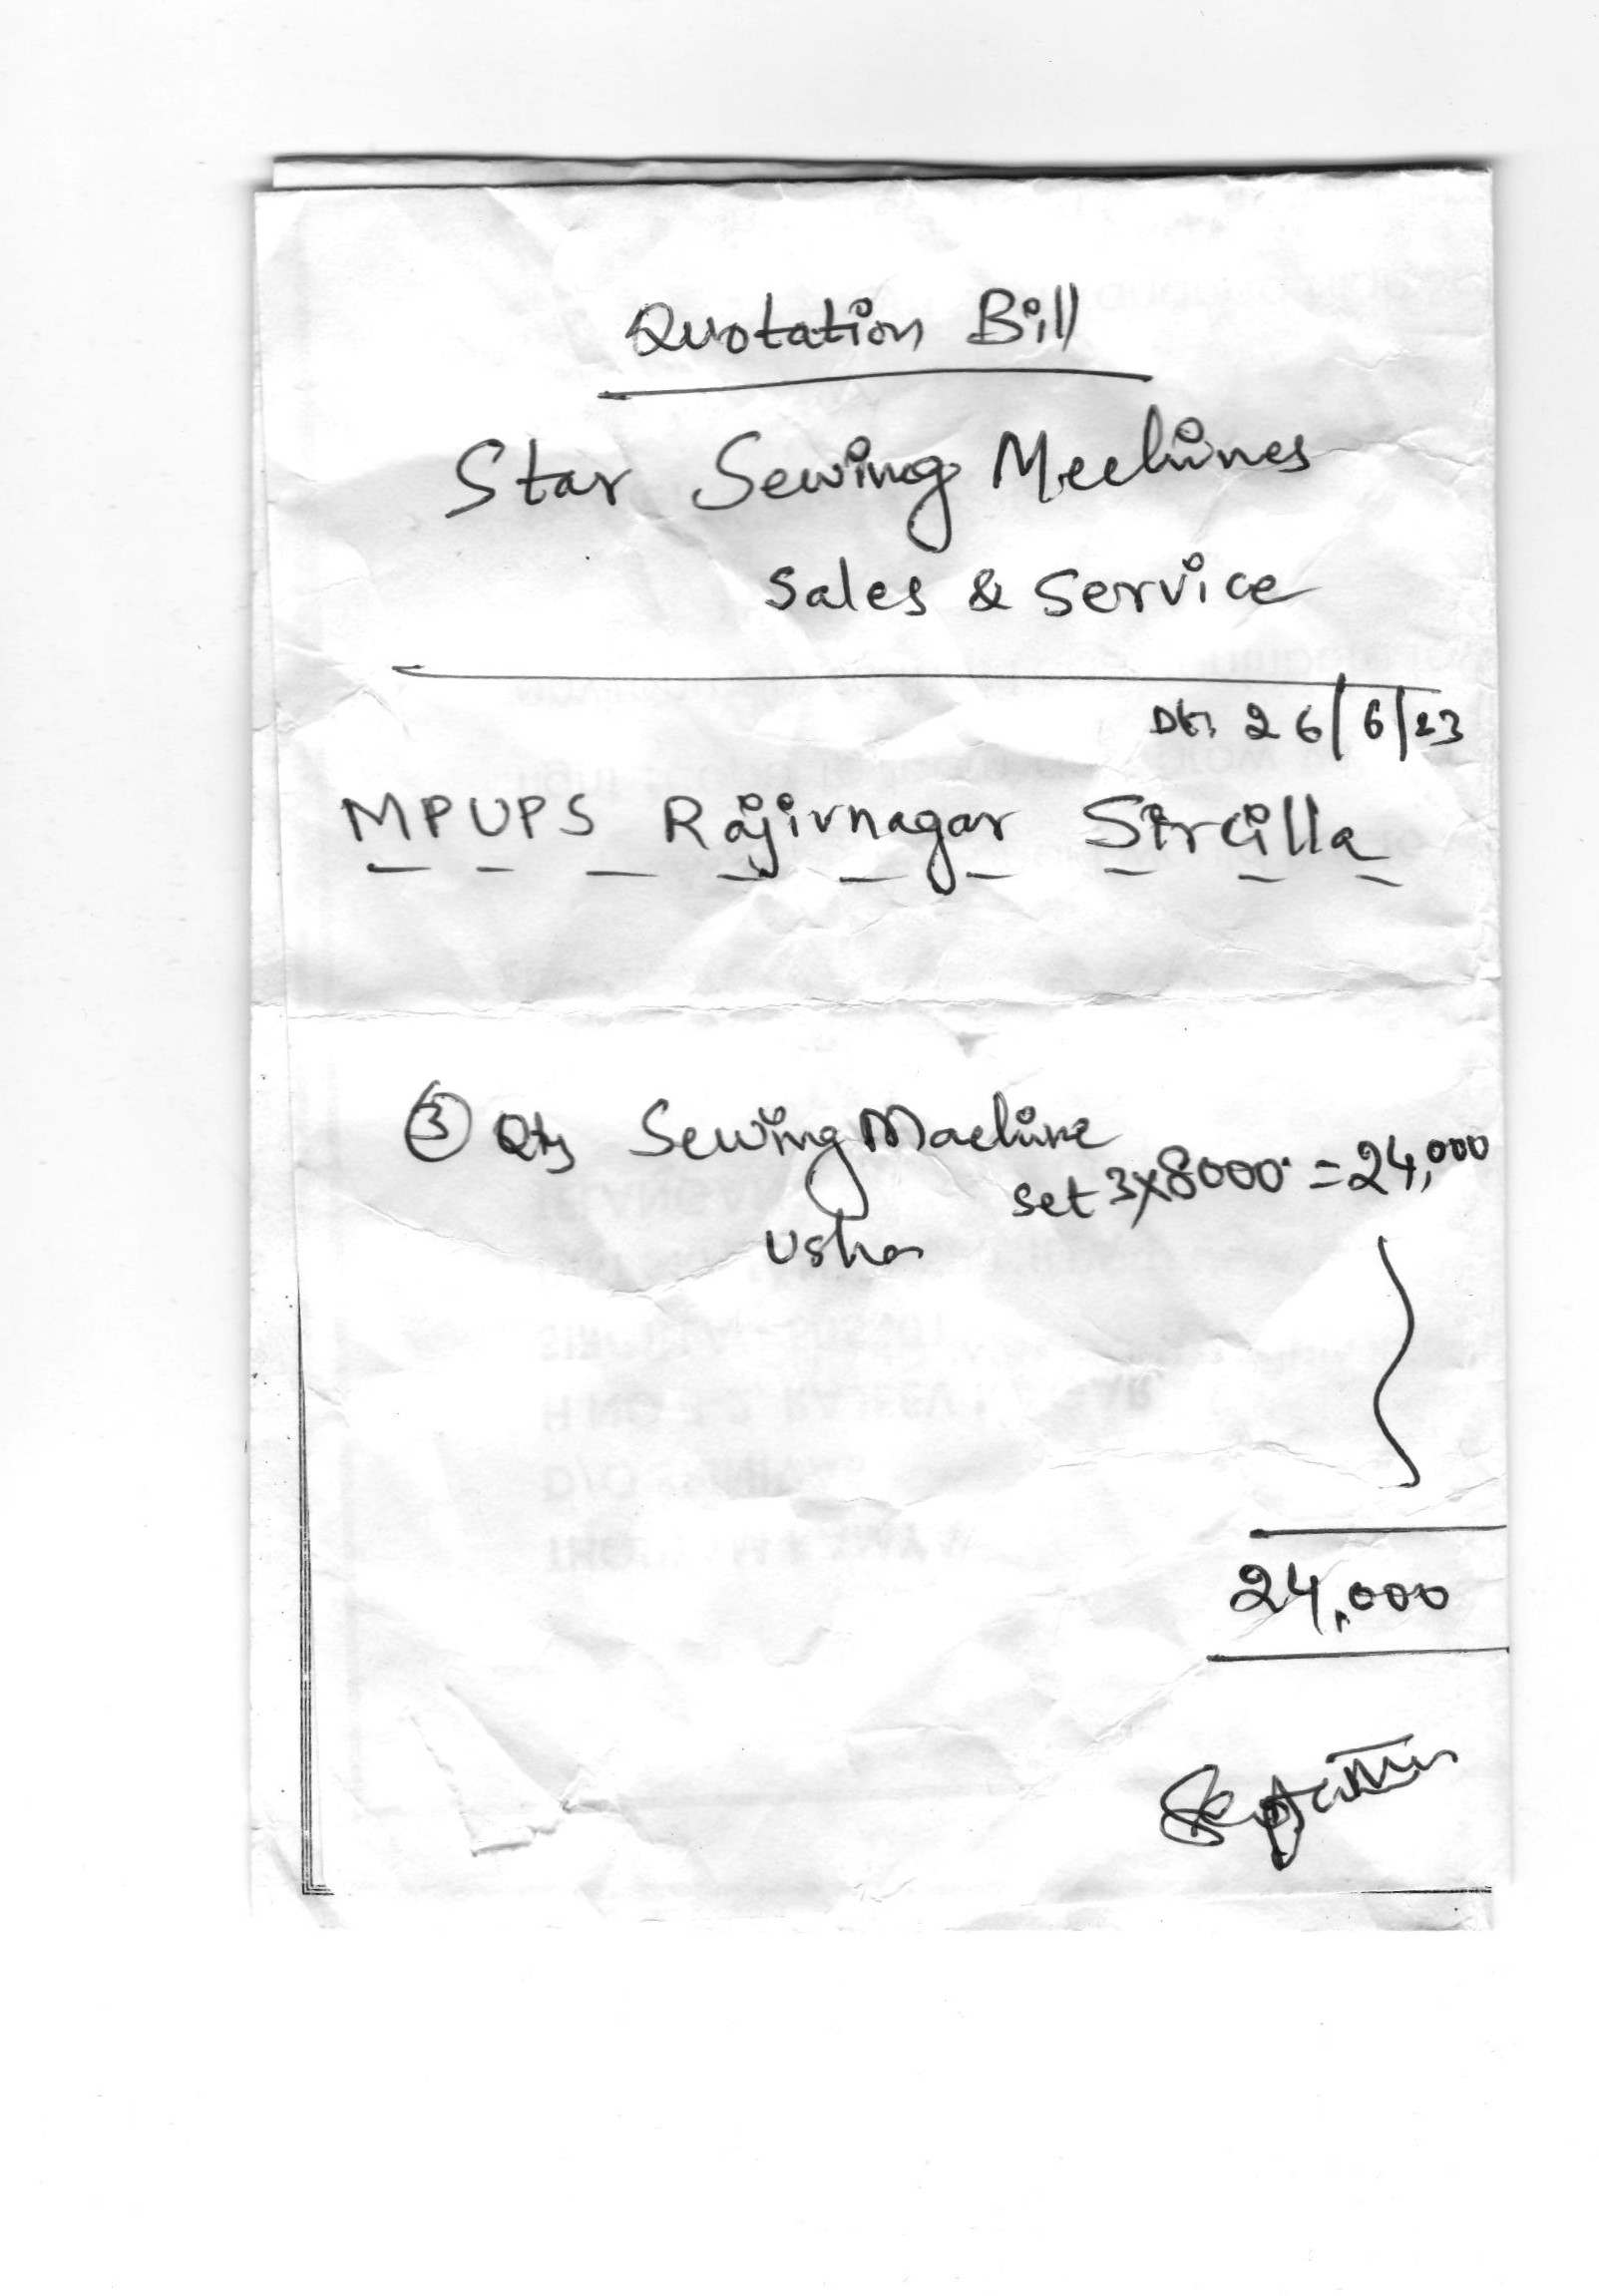 Quotation Bill
Star Sewing Mechines
Sales & Service
Dt: 26/6/23
MPUPS Rajivnagar Sircilla
③ Qty Sewing Machine
Set 3x8000 = 24,000
Usha
24,000